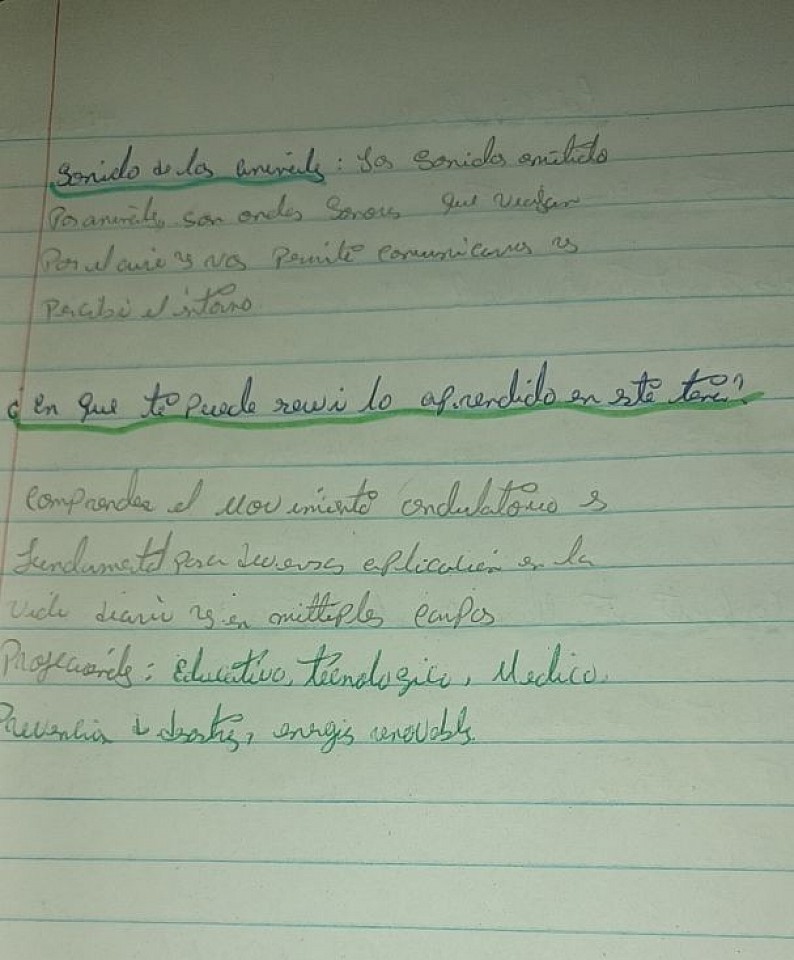 Sonido de los animals: Los sonidos emitido
Por animals son ondas Sonoras que viajan
Por el aire y nos Permite comunicarnos y
Percibi el entorno
¿en que te puede servi lo aprendido en este tema?
Comprender el movimiento ondulatorio es
fundamental para diversas aplicación en la
vida diaria y en multiples campos
Profesionals: Educativo, técnologico, Medico.
Prevención de desastres, energis renovabls.